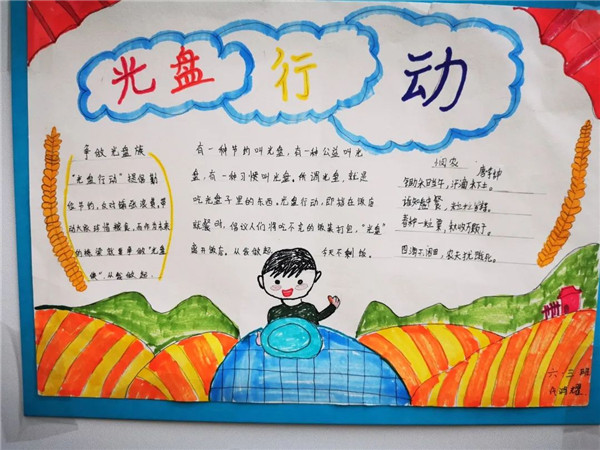 光盘行动
争做光盘族
"光盘行动"提倡勤
俭节约,反对铺张浪费,带
动大家珍惜粮食,作为未来
的我要争做"光盘
侠"从我做起.
有一种节约叫光盘,有一种公益叫光
盘,有一种习惯叫光盘,所谓光盘,就是
吃光盘子里的东西.光盘行动,即指在饭店
就餐时,倡议人们将吃不完的饭菜打包,"光盘"
离开饭店.从我做起 今天不剩饭.
悯农
李绅
锄禾日当午,汗滴禾下土.
谁知盘中餐,粒粒皆辛苦.
春种一粒粟,秋收万颗子.
四海无闲田,农夫犹饿死.
六三班